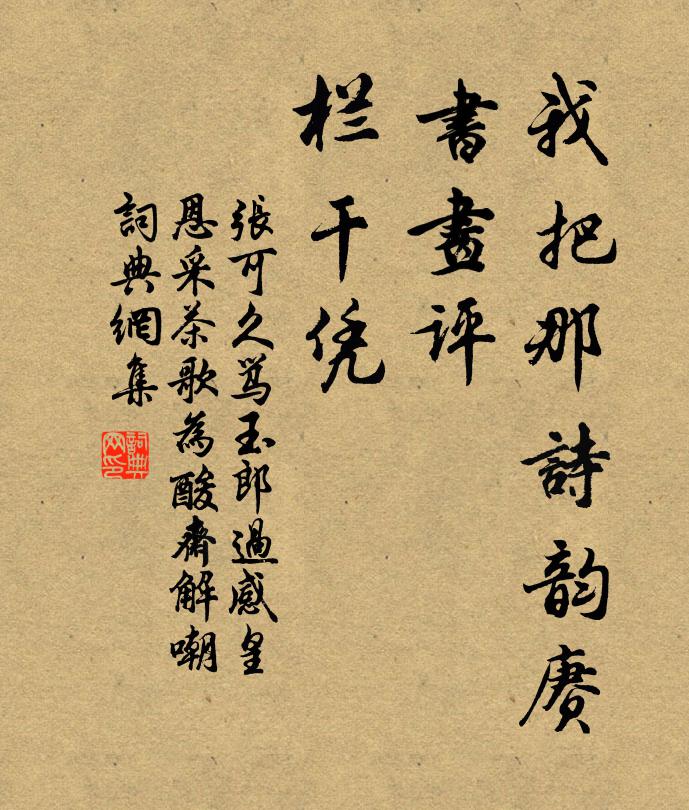 我把那詩韵赓
書畫评
栏干凭
張可久骂玉郎過感皇
恩采茶歌為酸齋解嘲
詞典網集
詞典
网印